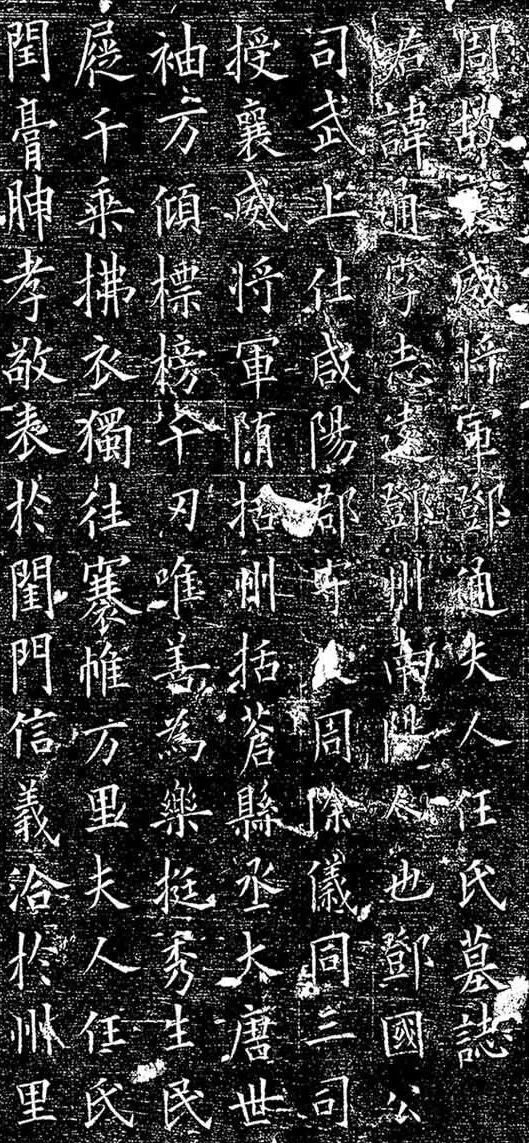 周故襄威将軍鄧通夫人任氏墓誌
君諱通字志遠鄧州南陽人也鄧國公
司武上仕咸陽郡守後周除儀同三司
授襄威将軍随括州括蒼縣丞大唐世
袖方傾標榜千刃唯善為樂挺秀生民
屣千乘拂衣獨往褰帷万里夫人任氏
閏膏腴孝敬表於閨門信義洽於州里